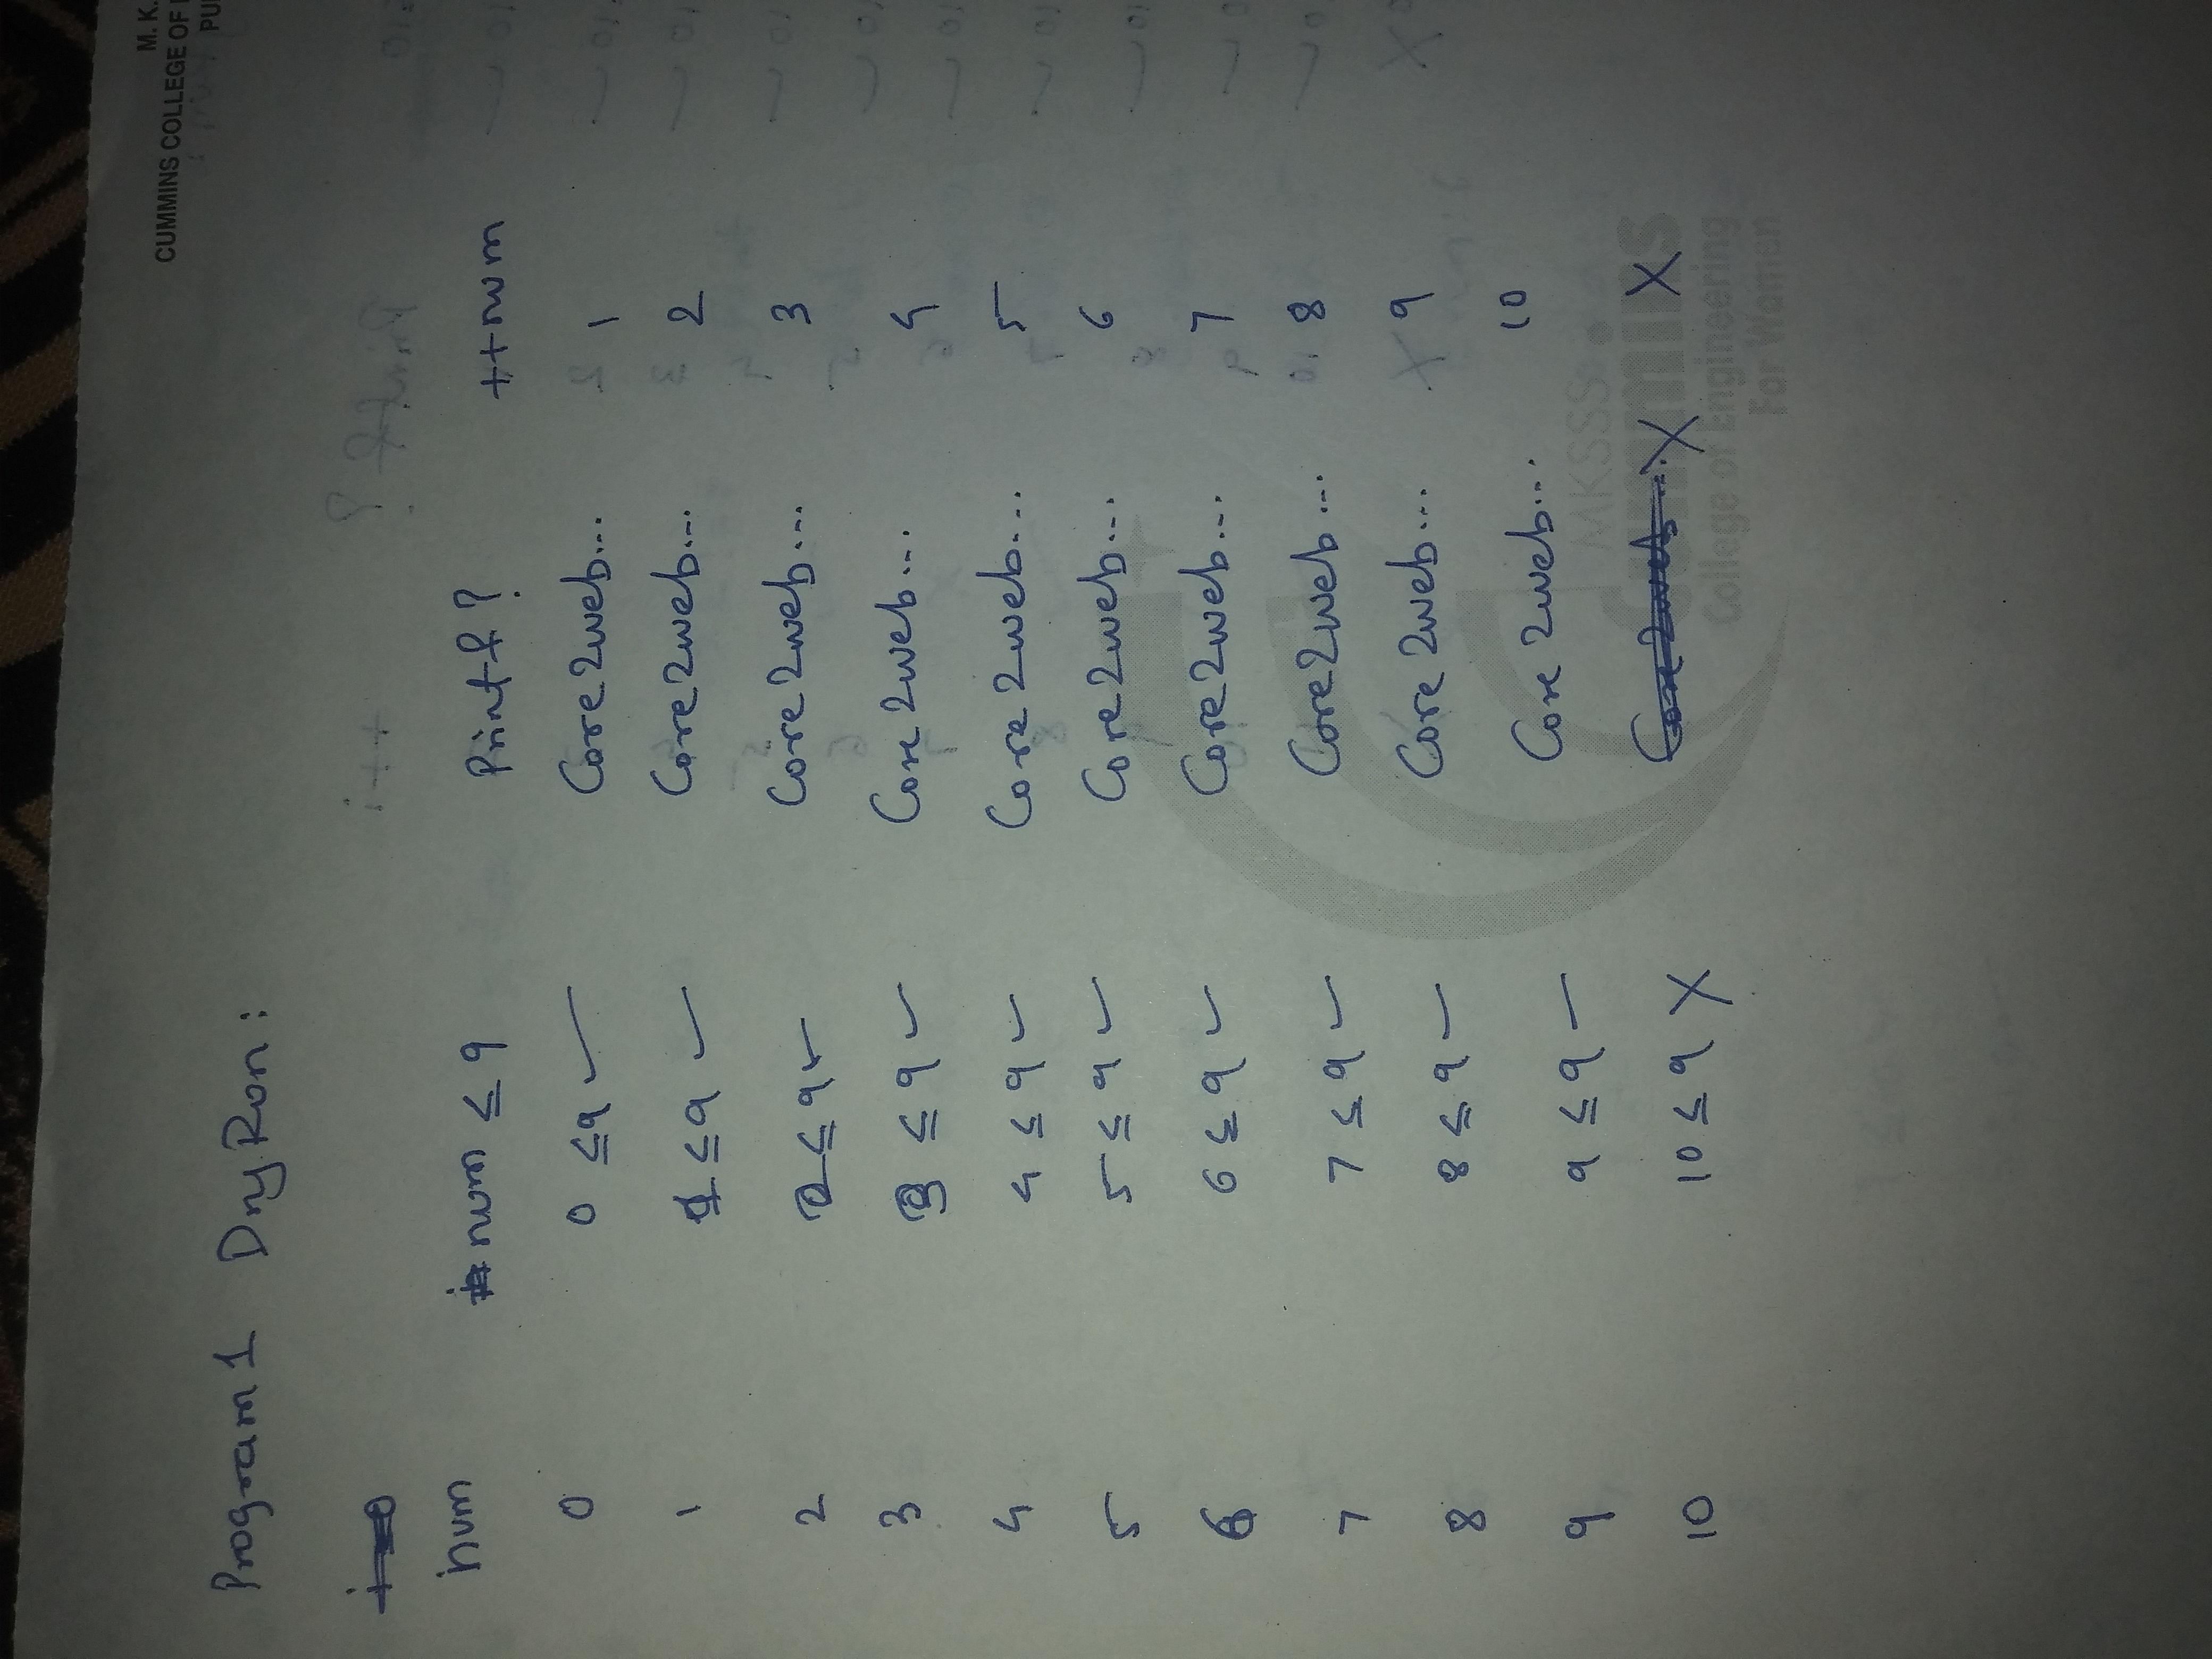 M. K.
CUMMINS COLLEGE OF
PU
Program 1 Dry Run:
num num ≤ 9 Printf? ++num
0 0 ≤9 ✓ Core2web... 1
1 1 ≤9 ✓ Core2web... 2
2 2≤9✓ Core2web... 3
3 3 ≤9 ✓ Core2web... 4
4 4 ≤9 ✓ Core2web... 5
5 5≤9 ✓ Core2web... 6
6 6≤9 ✓ Core2web... 7
7 7≤9 ✓ Core2web... 8
8 8≤9 ✓ Core2web... 9
9 9≤9 ✓ Core2web... 10
10 10≤9 X Core2web... X X
MKSSS
Cummins
College of Engineering
For Women